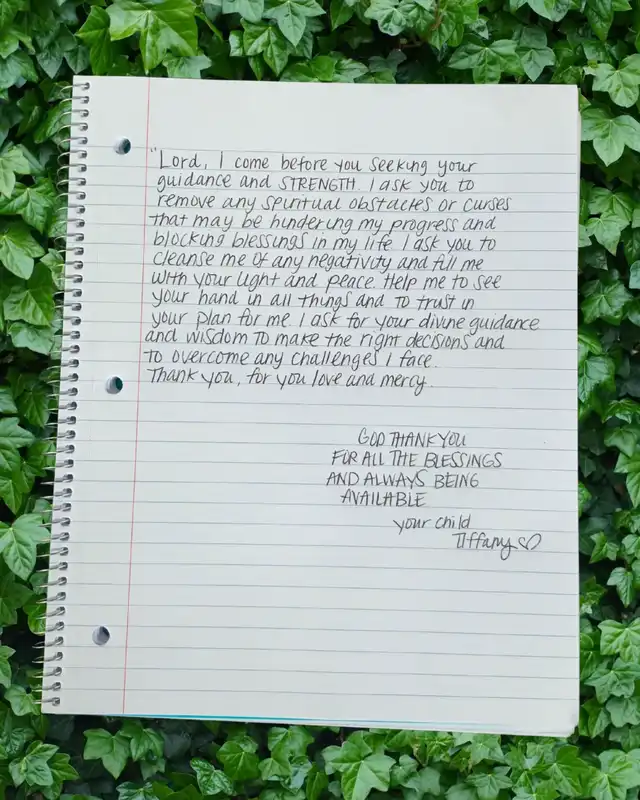 "Lord, I come before you seeking your
guidance and STRENGTH. I ask you to
remove any spiritual obstacles or curses
that may be hindering my progress and
blocking blessings in my life. I ask you to
cleanse me of any negativity and fill me
with your light and peace. Help me to see
your hand in all things and to trust in
your plan for me. I ask for your divine guidance
and wisdom to make the right decisions and
to overcome any challenges I face.
Thank you, for you love and mercy.
GOD THANK YOU
FOR ALL THE BLESSINGS
AND ALWAYS BEING
AVAILABLE
your child
Tiffany ♡